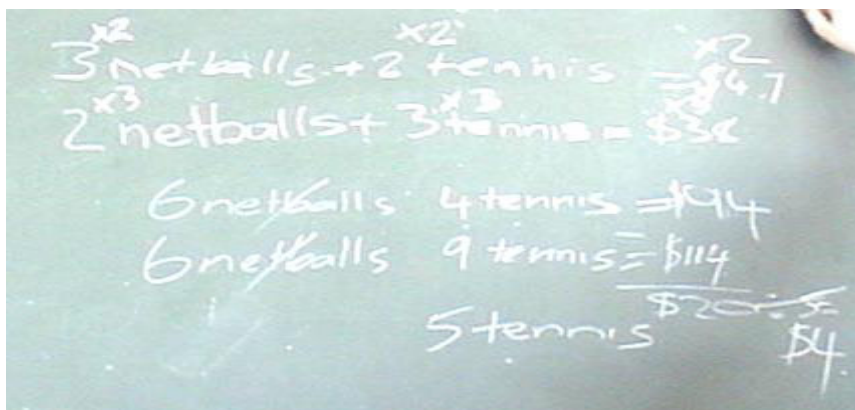 x2 x2 x2
3 netballs + 2 tennis = $47
x3 x3 x3
2 netballs + 3 tennis = $38
6 netballs 4 tennis = $94
6 netballs 9 tennis = $114
5 tennis $20 ÷ 5 =
$4.